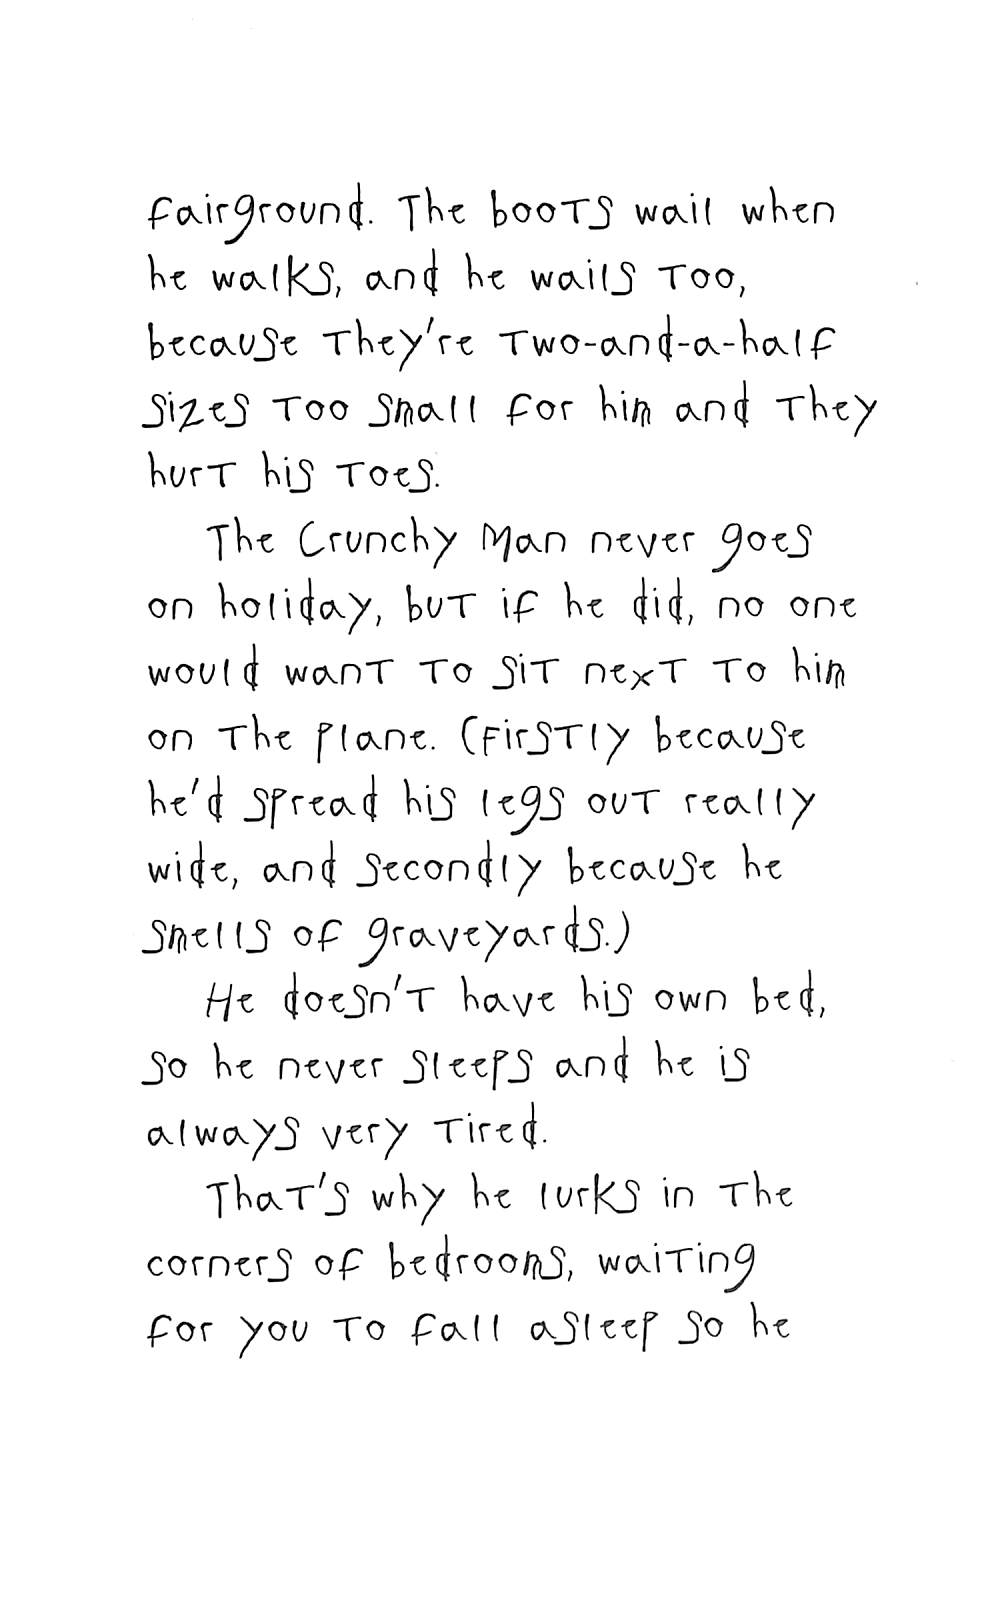 fairground. The boots wail when
he walks, and he wails too,
because they're two-and-a-half
sizes too small for him and they
hurt his toes.
The Crunchy Man never goes
on holiday, but if he did, no one
would want to sit next to him
on the plane. (Firstly because
he'd spread his legs out really
wide, and secondly because he
smells of graveyards.)
He doesn't have his own bed,
so he never sleeps and he is
always very tired.
That's why he lurks in the
corners of bedrooms, waiting
for you to fall asleep so he